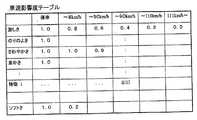 車速影響度テーブル
停車 ～40km/h ～50km/h ～90km/h ～110km/h 111km/h～
激しさ 1.0 0.8 0.6 0.4 0.2 0.0
のりのよさ 1.0
さわやかさ 1.0 1.0 0.9
楽しさ 1.0
：
特徴 i
：
ソフトさ 1.0 0.2